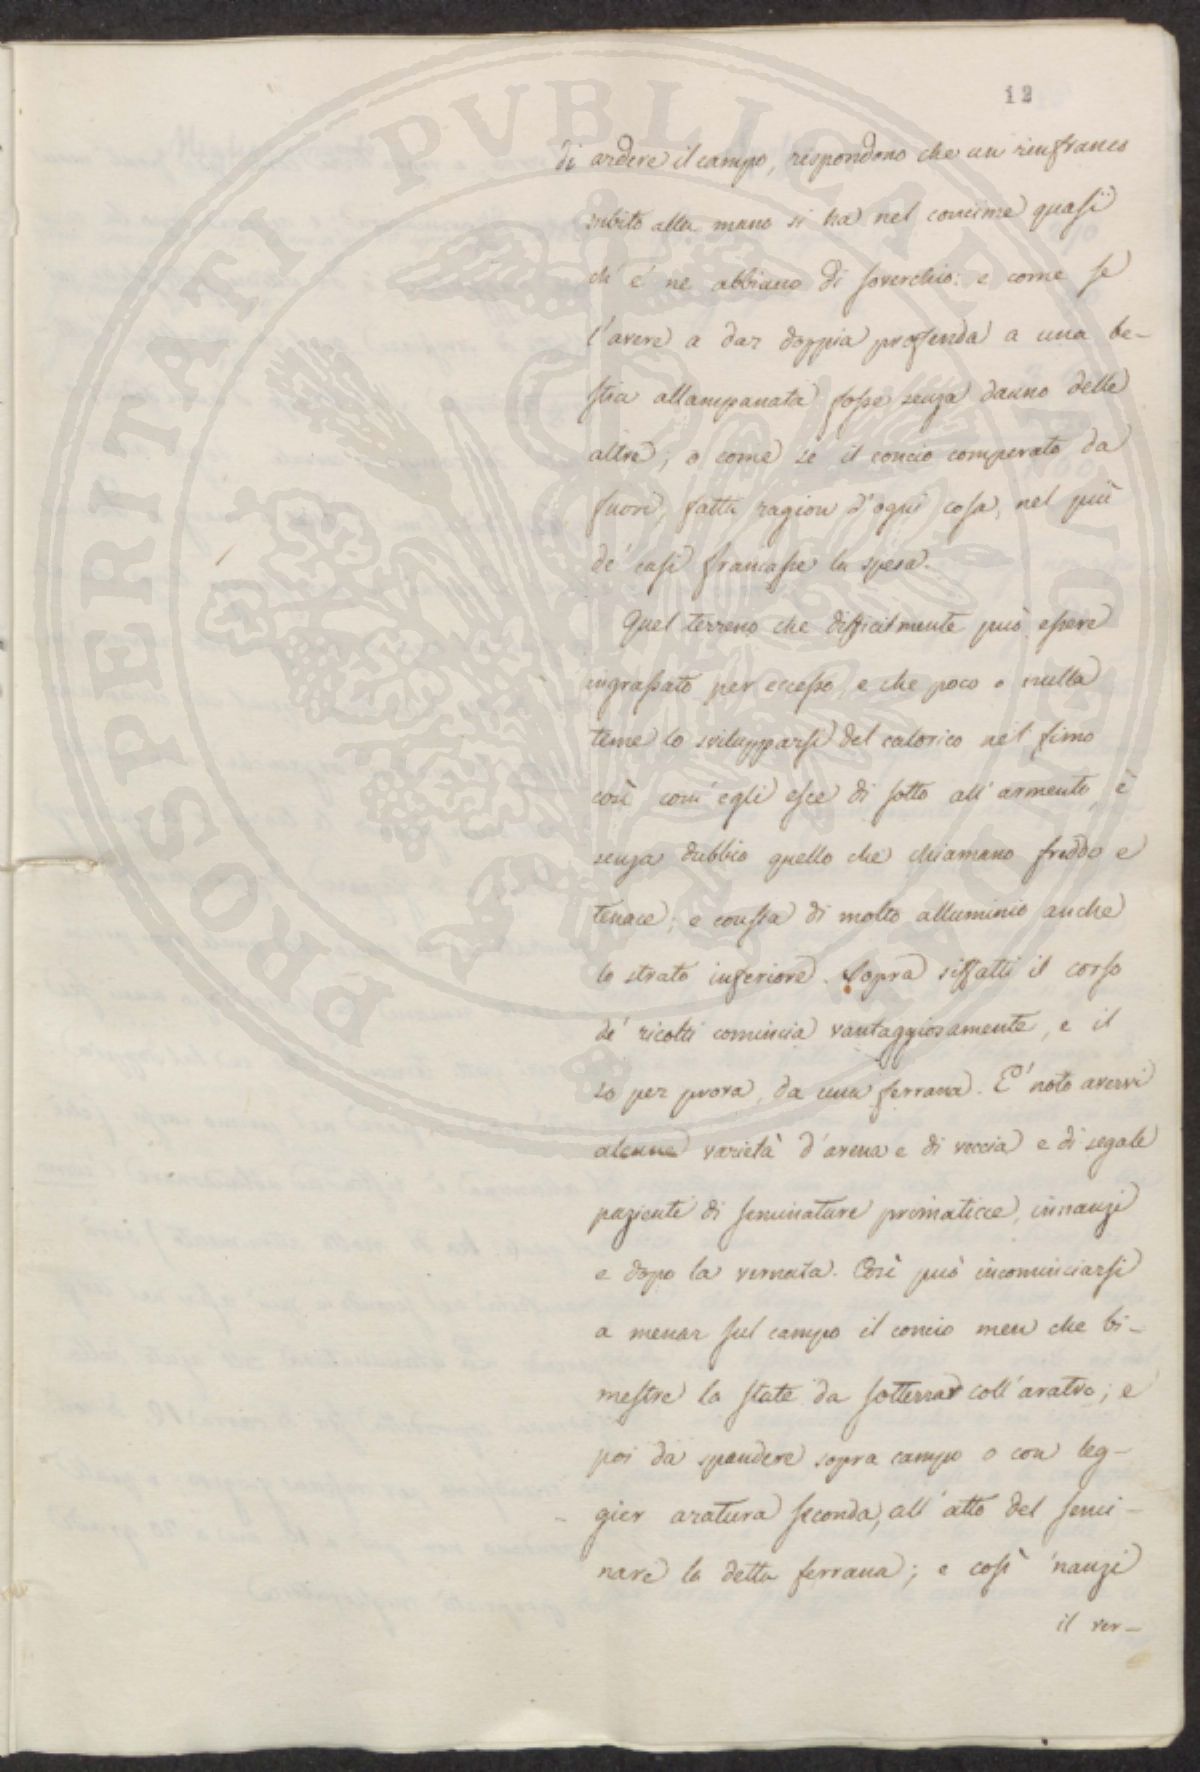 12
di ardere il campo, rispondono che un rinfranco
subito alla mano si ha nel concime quasi
ch' é ne abbiano di soverchio: e come se
l'avere a dar doppia profenda a una be-
stia allampanata fosse senza danno delle
altre; o come se il concio comperato da
fuori, fatta ragion d'ogni cosa, nel più
de' casi francasse la spesa.
Quel terreno che difficilmente può essere
ingrassato per eccesso, e che poco o nulla
teme lo svilupparsi del calorico nel fimo
così com' egli esce di sotto all' armento, è
senza dubbio quello che chiamano freddo e
tenace; e consta di molto alluminio anche
lo strato inferiore. Sopra siffatti il corso
de' ricolti comincia vantaggiosamente, e il
so per prova, da una ferrana. E' noto avervi
alcune varietà d'avena e di veccia e di segale
pazienti di seminature primaticce, innanzi
e dopo la vernata. Così può incominciarsi
a menar sul campo il concio men che bi-
mestre la state da sotterrar coll'aratro; e
poi da spandere sopra campo o con leg-
gier aratura seconda, all' atto del semi-
nare la detta ferrana; e così 'nanzi
il ver-
PROSPERITATI PVBLICAE AVGENDAE